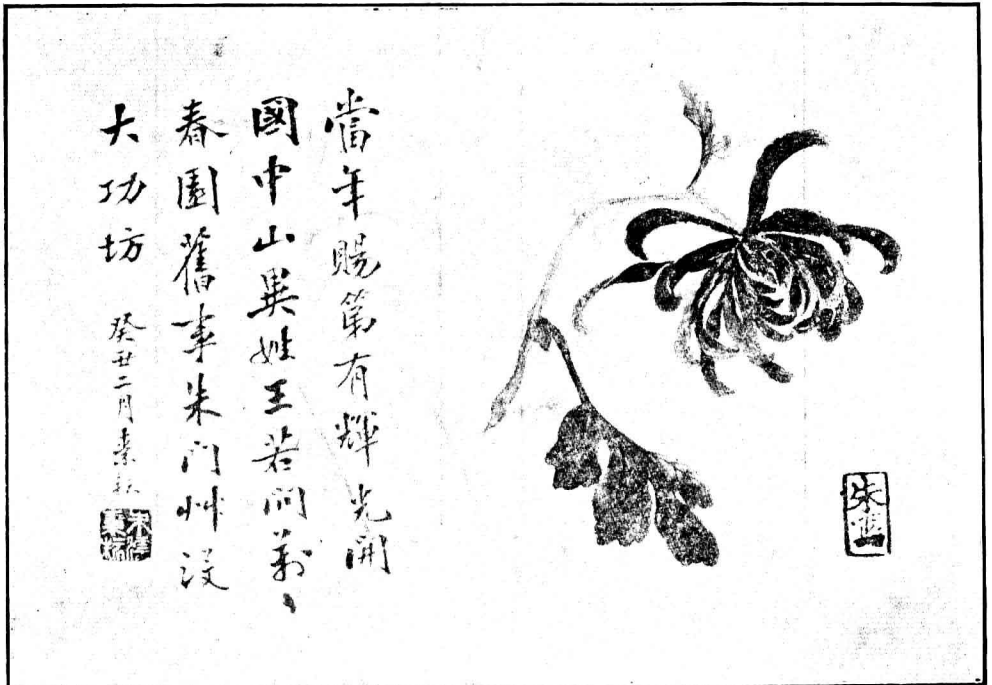 當年賜第有輝光開
國中山異姓王若問萬
春園舊事朱門艸没
大功坊 癸丑二月素秋